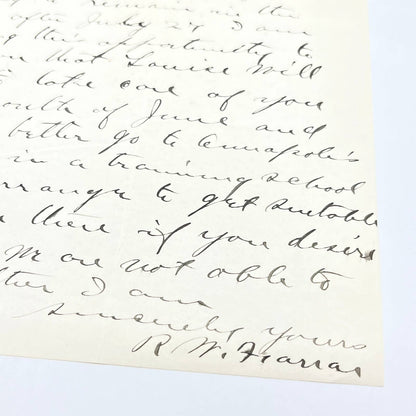 remain in the
after June 24 I am
this opportunity to
that Louise will
to take care of you
month of June and
better go to Annapolis
in a training school
arrange to get suitable
there if you desire
We are not able to
I am
Sincerely yours
R. W.